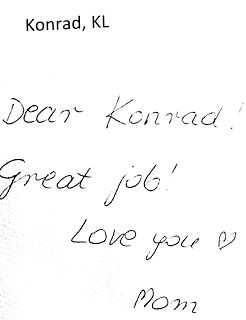 Konrad, KL
Dear Konrad!
Great job!
Love you ♡
Mom